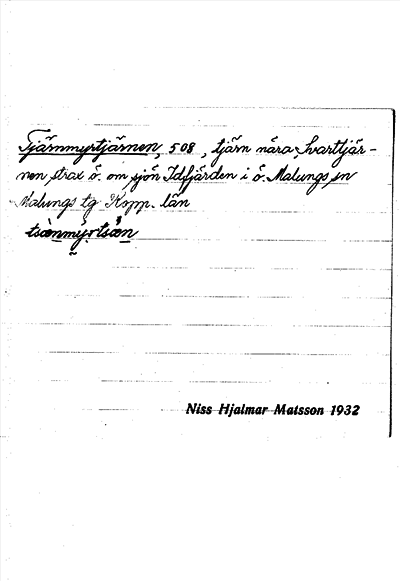 Tjärnmyrtjärnen, 508, tjärn nära Svarttjär-
nen, strax ö. om sjön Idfjärden i ö. Malungs sn
Malungs tg Kopp. län
tsànmýrtsǻn
Niss Hjalmar Matsson 1932